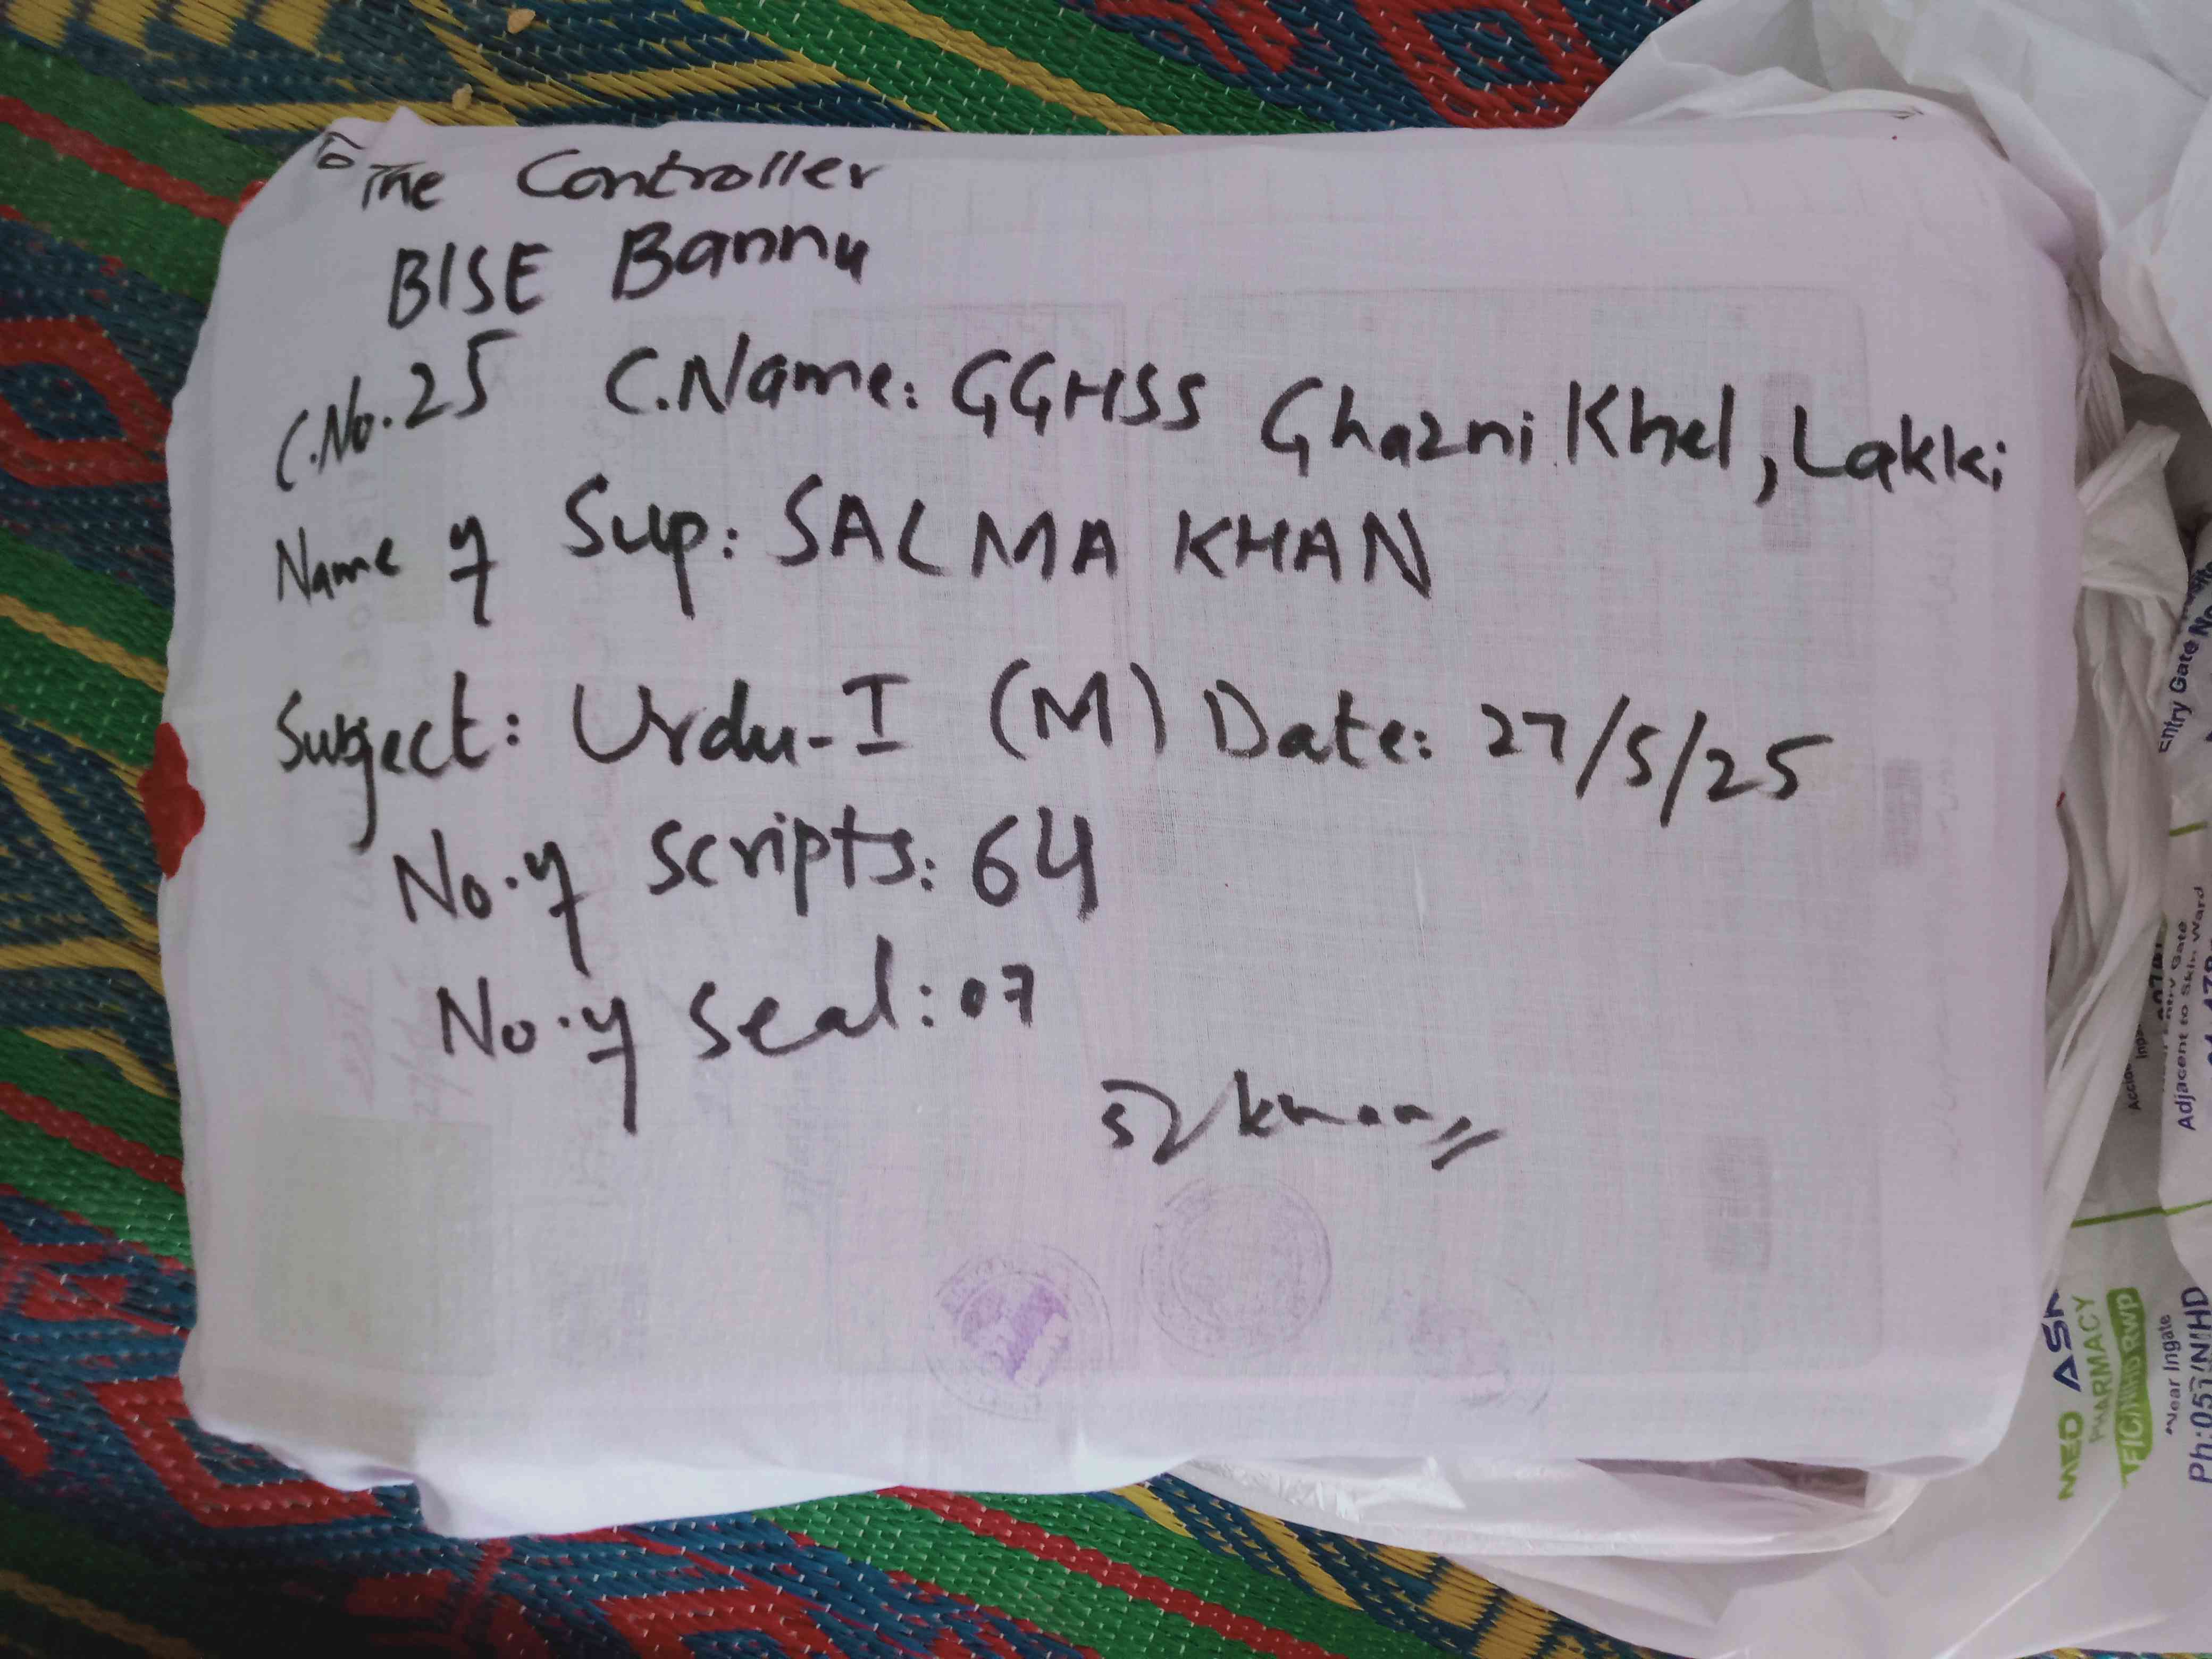 To
The Controller
BISE Bannu
C.No.25 C.Name: GGHSS Ghazni Khel, Lakki
Name of Sup: SALMA KHAN
Subject: Urdu-I (M) Date: 27/5/25
No. of scripts: 64
No. of seal: 07
Entry Gate No
Entry Gate
Adjacent to Skin Ward
MED ASK
PHARMACY
Near Ingate